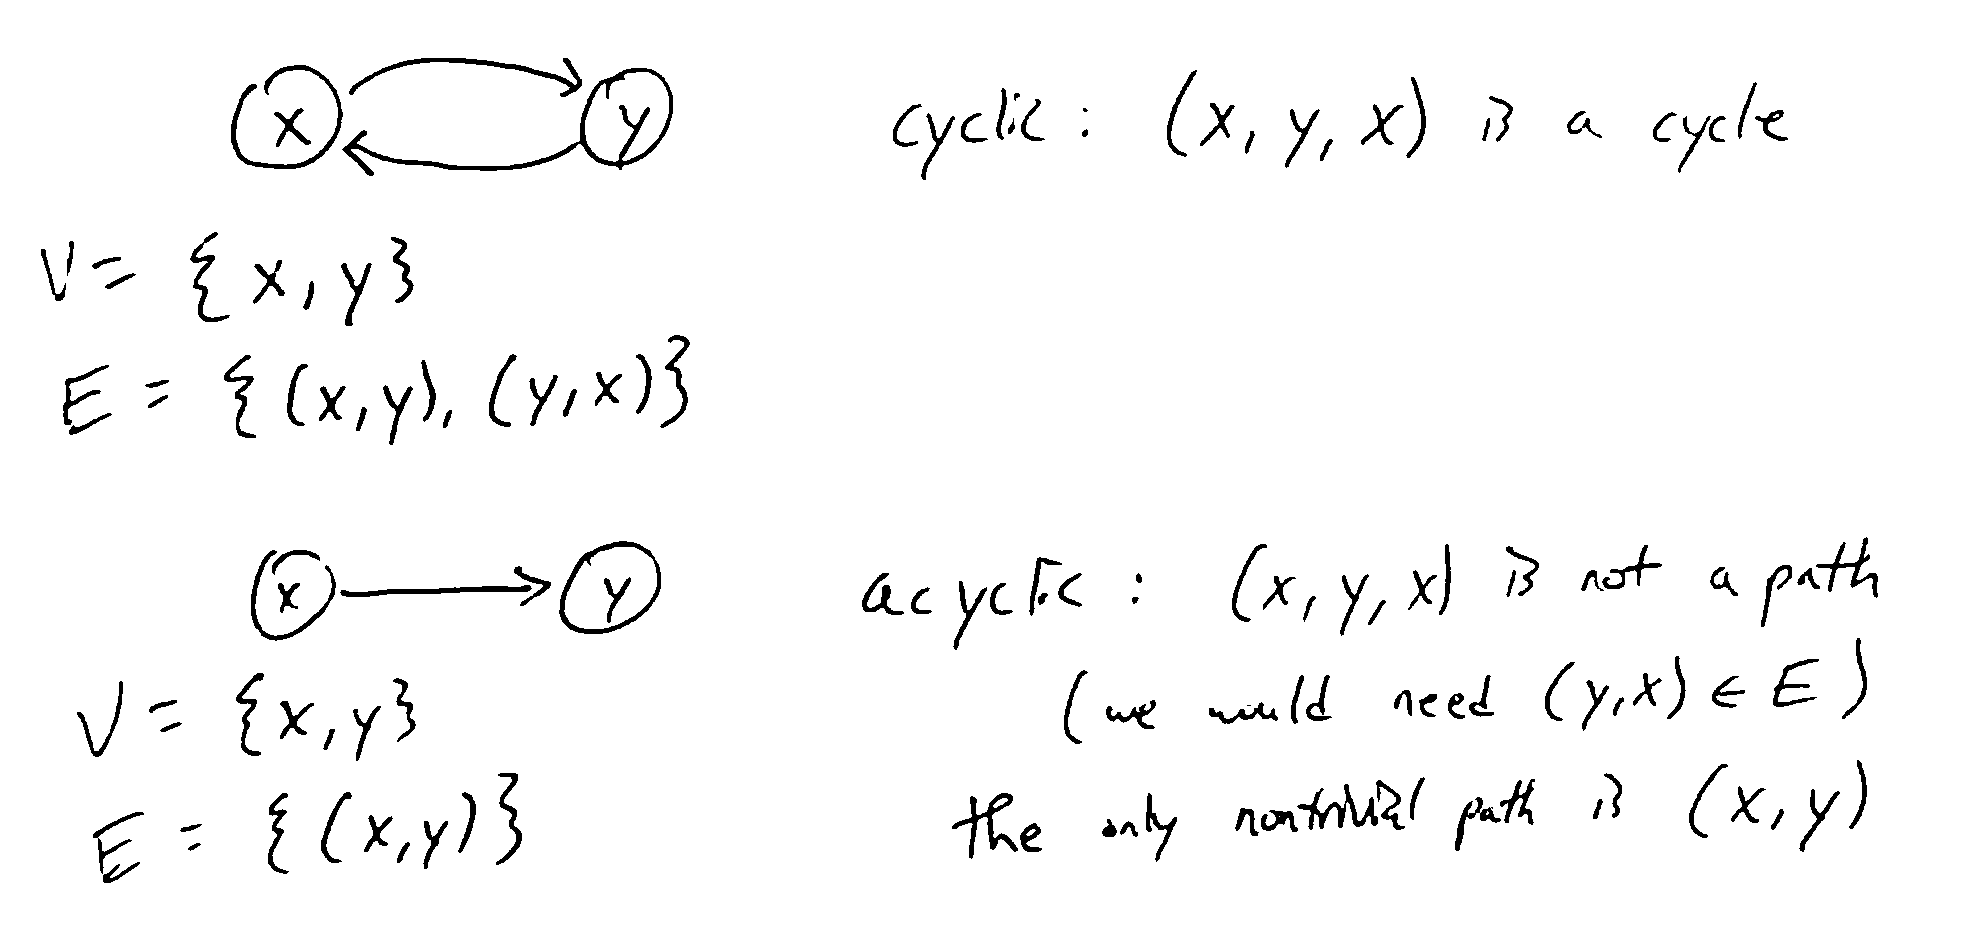 x y cyclic: (x, y, x) is a cycle
V = {x, y}
E = {(x,y), (y,x)}
x y acyclic: (x, y, x) is not a path
V = {x, y} (we would need (y,x) ∈ E)
E = {(x,y)} the only nontrivial path is (x, y)